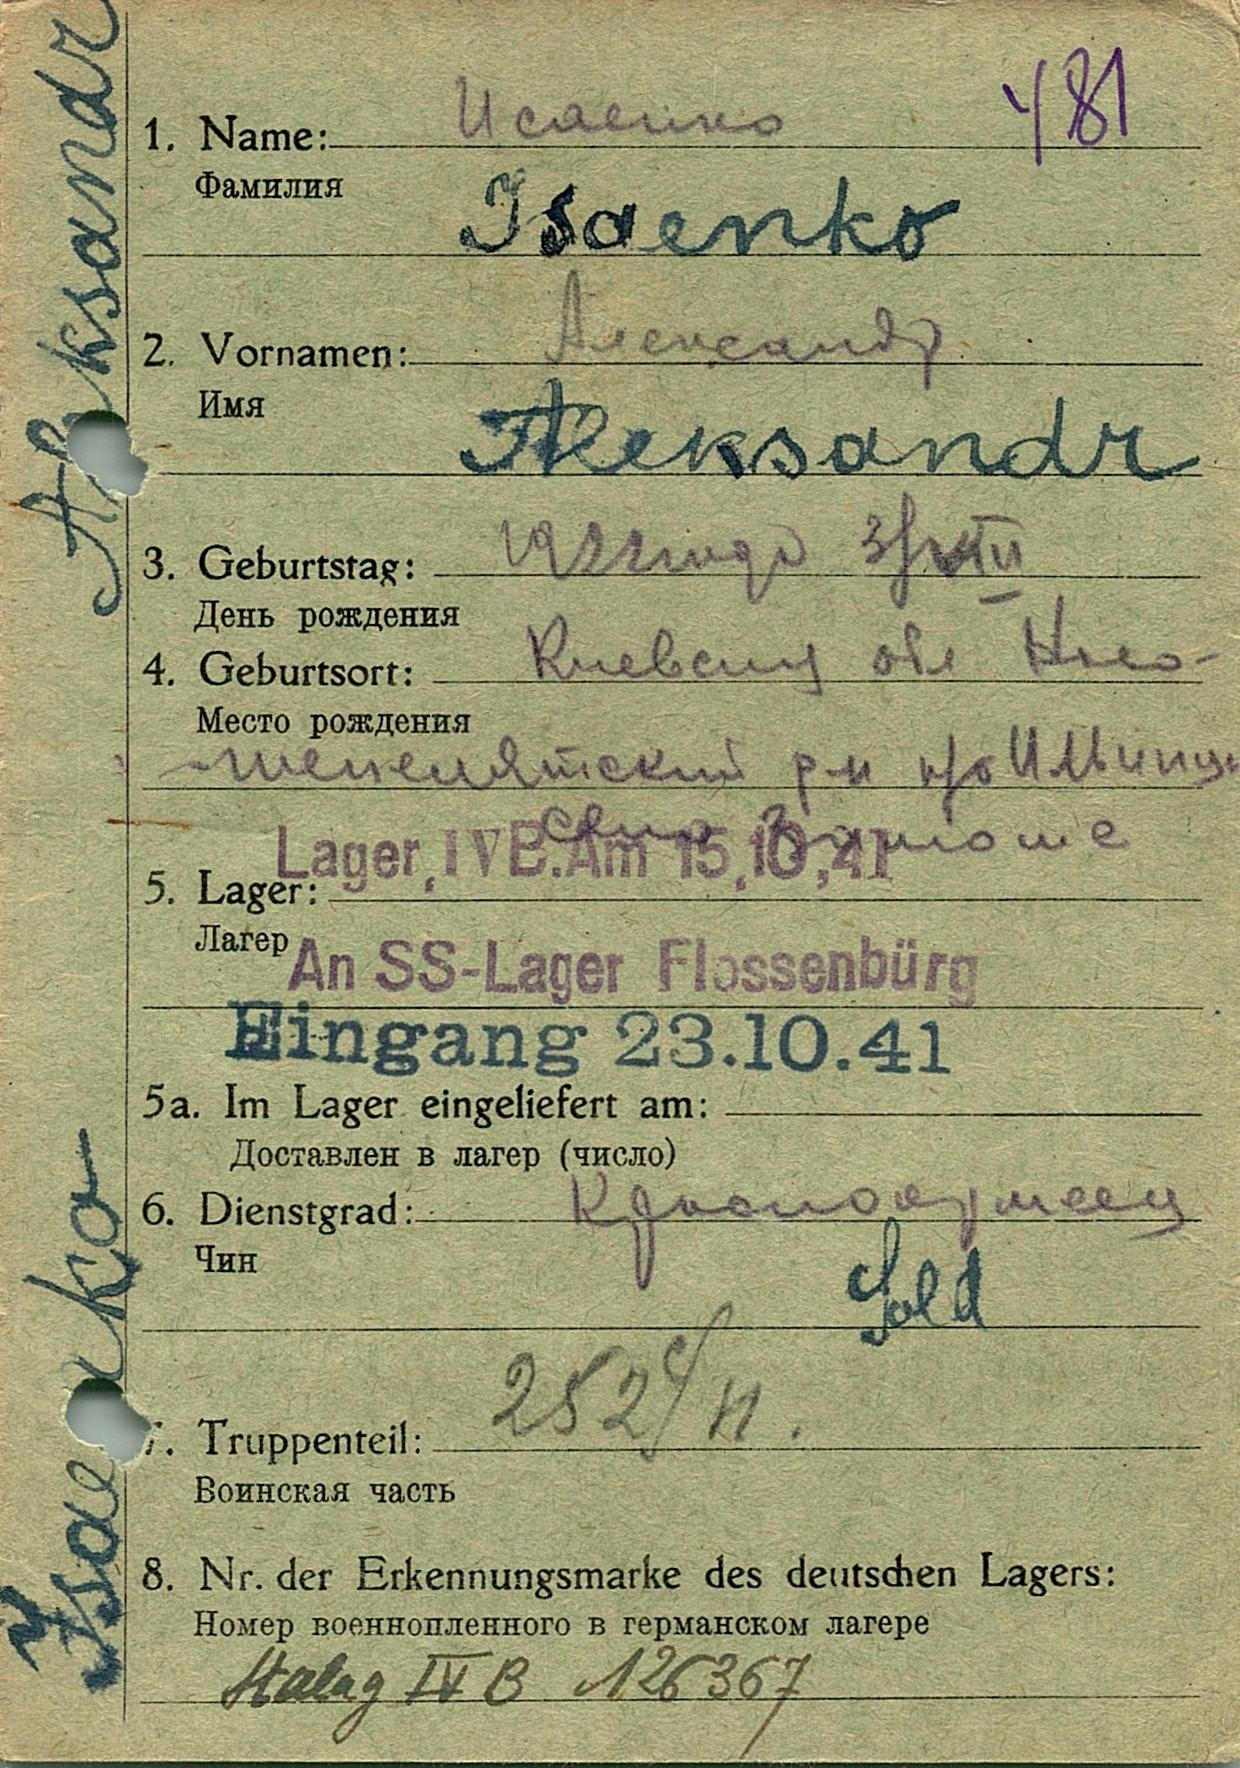 Aleksandr
Isaenko
481
1. Name: Исаенко
Фамилия
Isaenko
2. Vornamen: Александр
Имя
Aleksandr
3. Geburtstag: 1922 года
День рождения
4. Geburtsort: Киевск обл
Место рождения
р-н п/о
село
Lager, IVB. Am 15,10,41
5. Lager:
Лагер
An SS-Lager Flossenbürg
Eingang 23.10.41
5a. Im Lager eingeliefert am:
Доставлен в лагер (число)
6. Dienstgrad: Красноармеец
Чин
Sold
252 с/п.
7. Truppenteil:
Воинская часть
8. Nr. der Erkennungsmarke des deutschen Lagers:
Номер военнопленного в германском лагере
Stalag IV B 126367